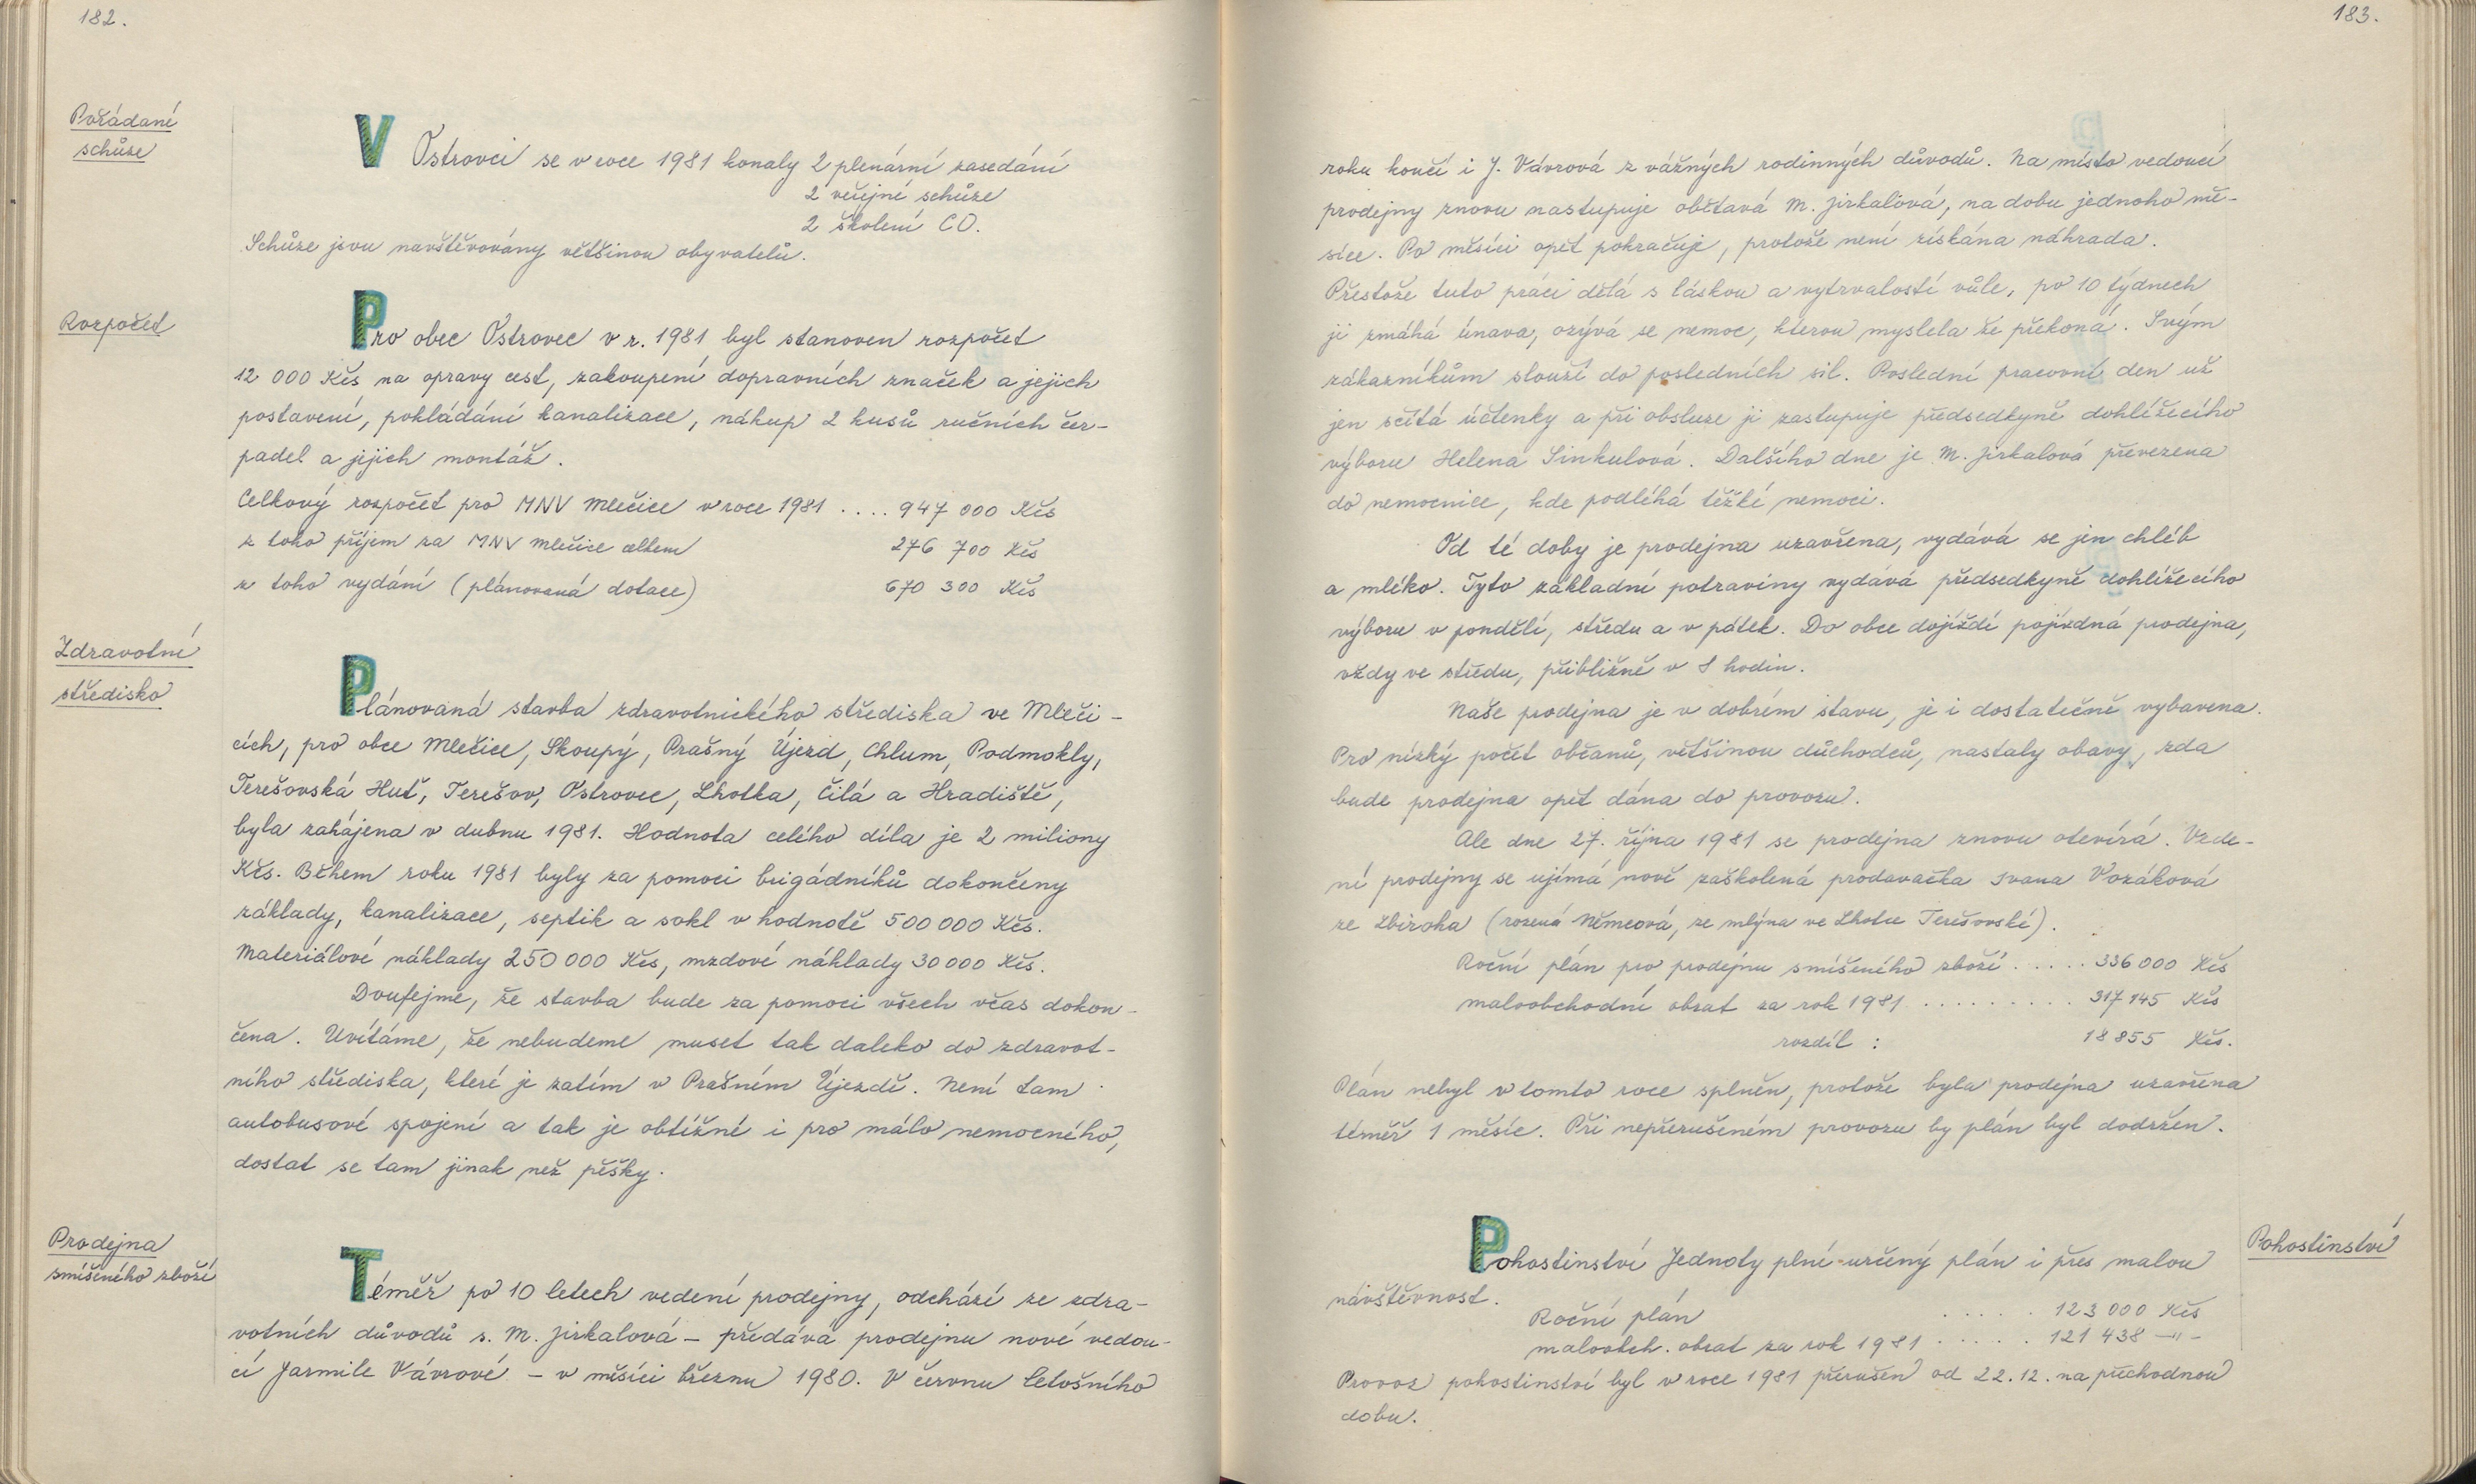 182.
Pořádané
schůze
V Ostrovci se v roce 1981 konaly 2 plenární zasedání
2 veřejné schůze
2 školení CO.
Schůze jsou navštěvovány většinou obyvatelů.
Rozpočet
Pro obec Ostrovec v r. 1981 byl stanoven rozpočet
12 000 Kčs na opravy cest, zakoupení dopravních značek a jejich
postavení, pokládání kanalizace, nákup 2 kusů ručních čer-
padel a jejich montáž.
Celkový rozpočet pro MNV Mlečice v roce 1981 .... 947 000 Kčs
z toho příjem za MNV Mlečice celkem 276 700 Kčs
z toho vydání (plánovaná dotace) 670 300 Kčs
Zdravotní
středisko
Plánovaná stavba zdravotnického střediska ve Mleči-
cích, pro obce Mlečice, Skoupý, Prašný Újezd, Chlum, Podmokly,
Terešovská Huť, Terešov, Ostrovec, Lhotka, Čilá a Hradiště,
byla zahájena v dubnu 1981. Hodnota celého díla je 2 miliony
Kčs. Během roku 1981 byly za pomoci brigádníků dokončeny
základy, kanalizace, septik a sokl v hodnotě 500 000 Kčs.
Materiálové náklady 250 000 Kčs, mzdové náklady 30 000 Kčs.
Doufejme, že stavba bude za pomoci všech včas dokon-
čena. Uvítáme, že nebudeme muset tak daleko do zdravot-
ního střediska, které je zatím v Prašném Újezdě. Není tam
autobusové spojení a tak je obtížné i pro málo nemocného,
dostat se tam jinak než pěšky.
Prodejna
smíšeného zboží
Téměř po 10 letech vedení prodejny, odchází ze zdra-
votních důvodů s. M. Jirkalová - předává prodejnu nové vedou-
cí Jarmile Vávrové - v měsíci březnu 1980. V červnu letošního
183.
roku končí i J. Vávrová z vážných rodinných důvodů. Na místo vedoucí
prodejny znovu nastupuje obětavá M. Jirkalová, na dobu jednoho mě-
síce. Po měsíci opět pokračuje, protože není získána náhrada.
Přestože tuto práci dělá s láskou a vytrvalostí vůle, po 10 týdnech
ji zmáhá únava, ozývá se nemoc, kterou myslela že překoná. Svým
zákazníkům slouží do posledních sil. Poslední pracovní den už
jen sčítá účtenky a při obsluze ji zastupuje předsedkyně dohlížecího
výboru Helena Sinkulová. Dalšího dne je M. Jirkalová převezena
do nemocnice, kde podléhá těžké nemoci.
Od té doby je prodejna uzavřena, vydává se jen chléb
a mléko. Tyto základní potraviny vydává předsedkyně dohlížecího
výboru v pondělí, středu a v pátek. Do obce dojíždí pojízdná prodejna,
vždy ve středu, přibližně v 8 hodin.
Naše prodejna je v dobrém stavu, je i dostatečně vybavena.
Pro nízký počet občanů, většinou důchodců, nastaly obavy, zda
bude prodejna opět dána do provozu.
Ale dne 27. října 1981 se prodejna znovu otevírá. Vede-
ní prodejny se ujímá nově zaškolená prodavačka Ivana Vozáková
ze Zbiroha (rozená Němcová, ze mlýna ve Lhotce Terešovské).
Roční plán pro prodejnu smíšeného zboží ..... 336 000 Kčs
maloobchodní obrat za rok 1981 ......... 317 145 Kčs
rozdíl : 18 855 Kčs.
Plán nebyl v tomto roce splněn, protože byla prodejna uzavřena
téměř 1 měsíc. Při nepřerušeném provozu by plán byl dodržen.
Pohostinství
Pohostinství Jednoty plní určený plán i přes malou
návštěvnost.
Roční plán ..... 123 000 Kčs
maloobch. obrat za rok 1981 ..... 121 438 -"-
Provoz pohostinství byl v roce 1981 přerušen od 22.12. na přechodnou
dobu.